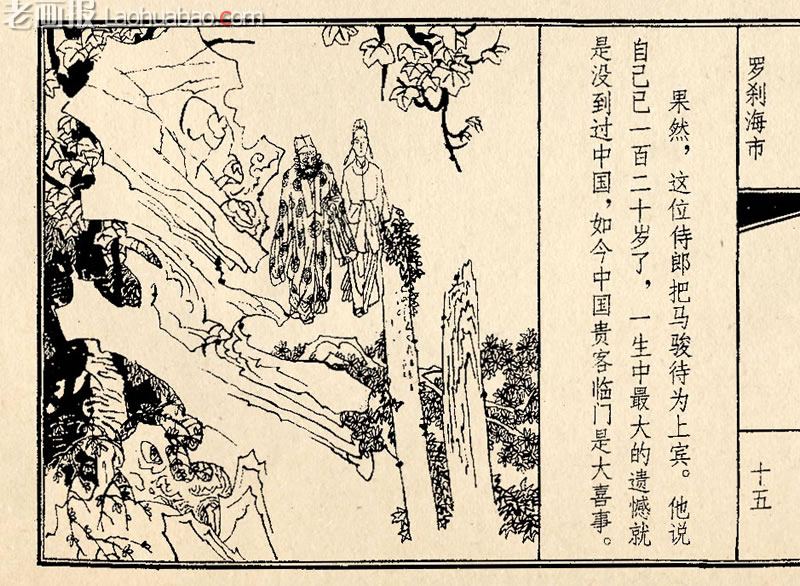 老画报.com
Laohuabao.com
罗刹海市
果然，这位侍郎把马骏待为上宾。他说
自己已一百二十岁了，一生中最大的遗憾就
是没到过中国，如今中国贵客临门是大喜事。
十五